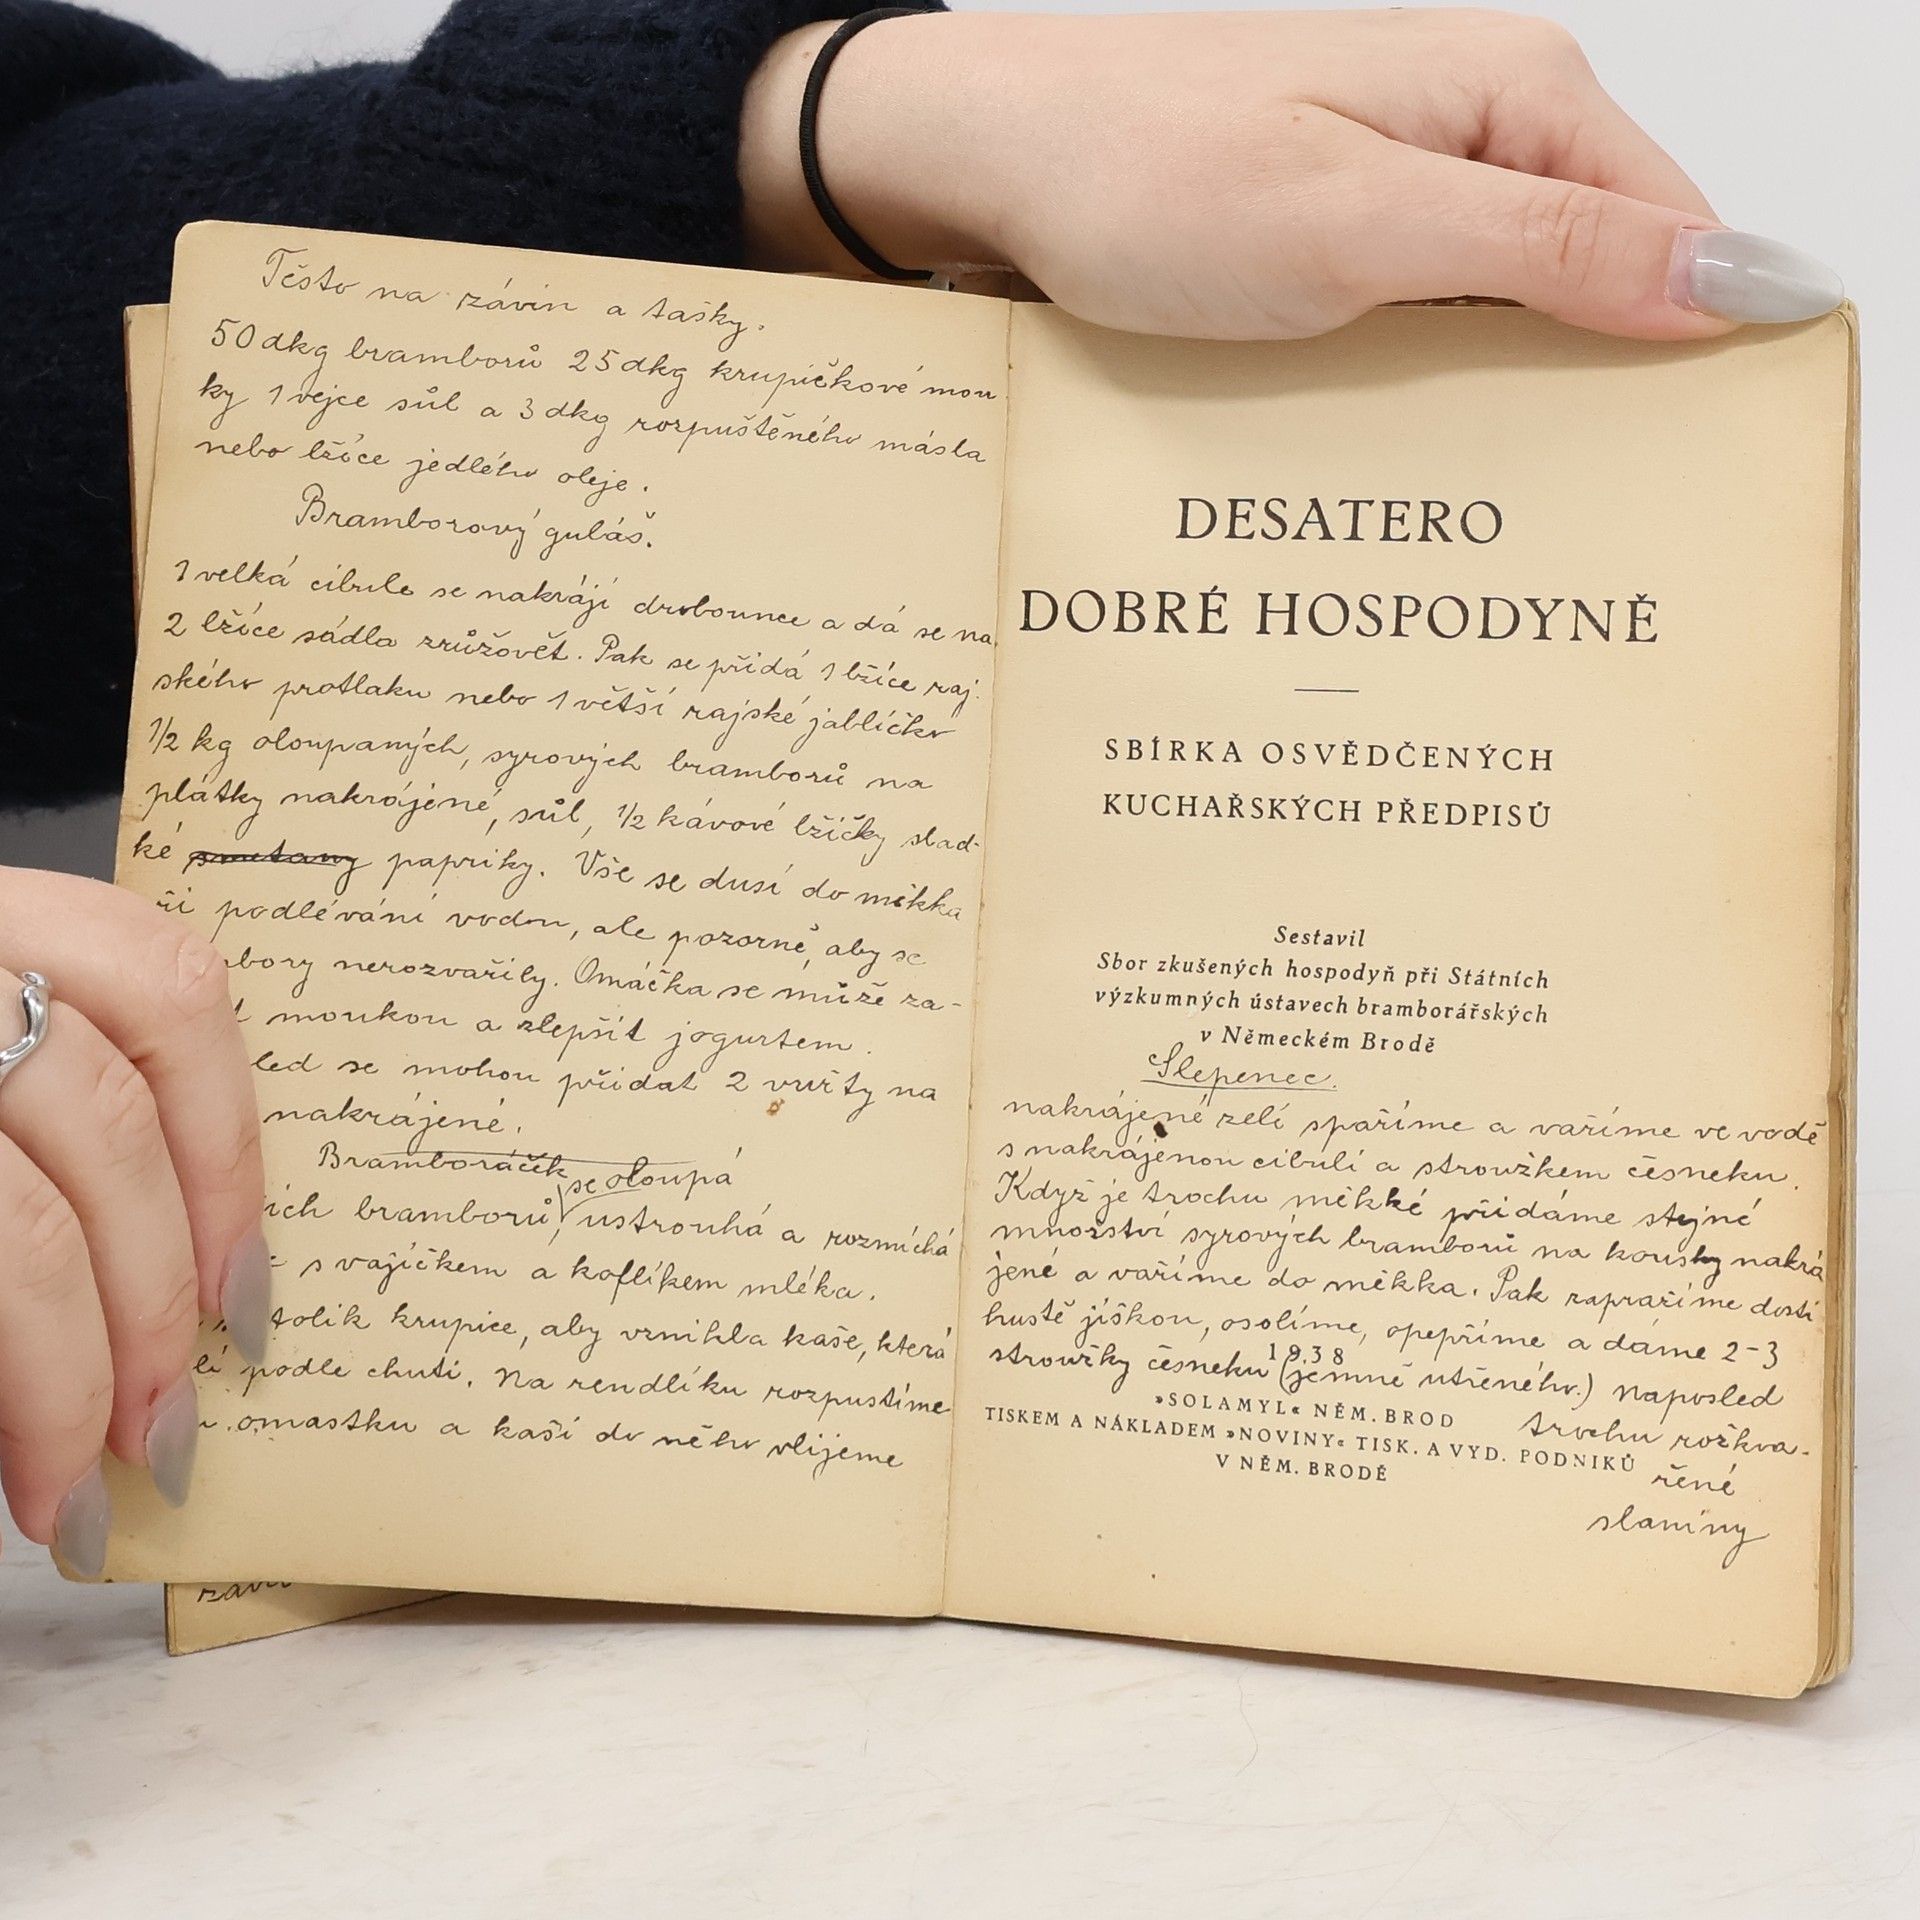 Těsto na závin a tašky.
50 dkg bramborů 25 dkg krupičkové mou
ky 1 vejce sůl a 3 dkg rozpuštěného másla
nebo lžíce jedlého oleje.
Bramborový guláš.
1 velká cibule se nakrájí drobounce a dá se na
2 lžíce sádla zrůžovět. Pak se přidá 1 lžíce raj.
ského protlaku nebo 1 větší rajské jablíčko
1/2 kg oloupaných, syrových bramborů na
plátky nakrájené, sůl, 1/2 kávové lžičky slad-
ké smetany papriky. Vše se dusí do měkka
podlévání vodou, ale pozorně, aby se
nerozvařily. Omáčka se může za-
moukou a zlepšit jogurtem.
se mohou přidat 2 vuřty na
nakrájené.
Bramboráček
se oloupá
bramborů, ustrouhá a rozmíchá
s vajíčkem a koflíkem mléka.
tolik krupice, aby vznikla kaše, která
podle chuti. Na rendlíku rozpustíme
omastku a kaši do něho vlijeme
DESATERO
DOBRÉ HOSPODYNĚ
SBÍRKA OSVĚDČENÝCH
KUCHAŘSKÝCH PŘEDPISŮ
Sestavil
Sbor zkušených hospodyň při Státních
výzkumných ústavech bramborářských
v Německém Brodě
Slepenec.
nakrájené zelí spaříme a vaříme ve vodě
s nakrájenou cibulí a stroužkem česneku.
Když je trochu měkké přidáme stejné
množství syrových bramborů na kousky nakrá
jené a vaříme do měkka. Pak zapražíme dosti
hustě jíškou, osolíme, opepříme a dáme 2-3
stroužky česneku (jemně utřeného.) Naposled
trochu rožkva-
řené
slaniny
1938
»SOLAMYL« NĚM. BROD
TISKEM A NÁKLADEM »NOVINY« TISK. A VYD. PODNIKŮ
V NĚM. BRODĚ